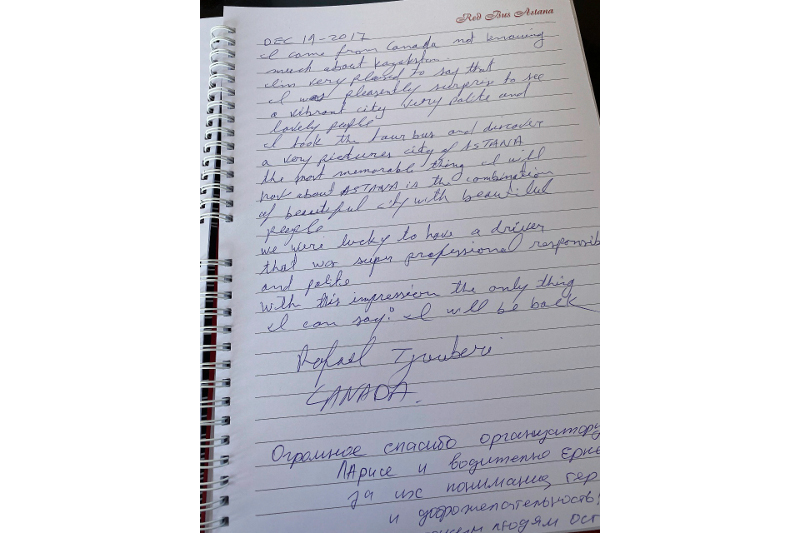 Red Bus Astana
DEC 19-2017
I came from Canada not knowing
much about Kazakstan
I'm very plased to say that
I was pleasently surprise to see
a vibrant city very polite and
lovely people
I took the tour bus and discover
a very pictures city of ASTANA
the most memorable thing I will
have about ASTANA is the combination
of beautiful city with beautiful
people
we were lucky to have a driver
that was super professional responsib
and polite
with this impression the only thing
I can say: I will be back
Rafael
CANADA.
Огромное спасибо организатору
Ларисе и водителю Ерке
за их понимание тер
и доброжелательность!
людям ост